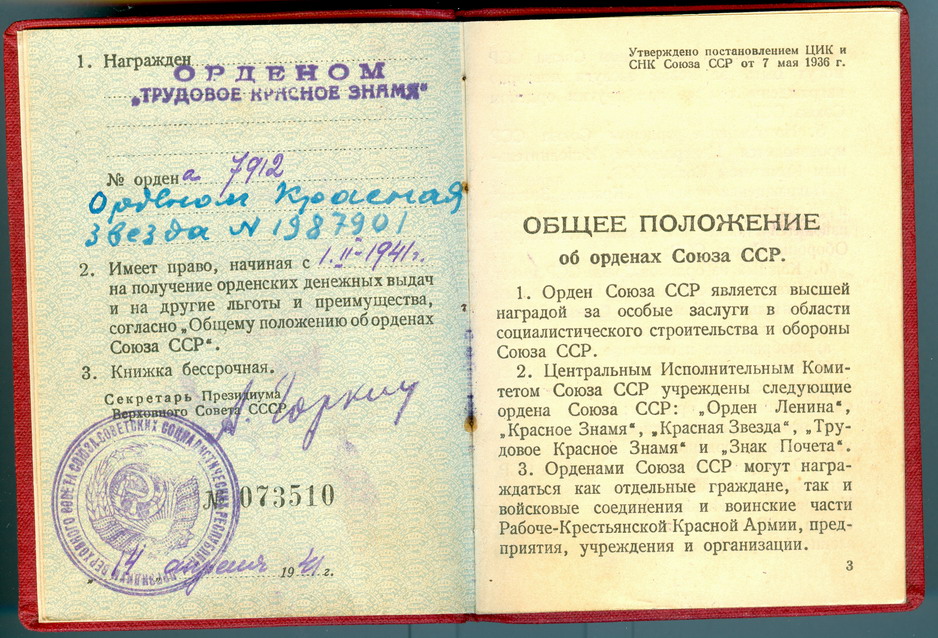 1. Награжден
ОРДЕНОМ
„ТРУДОВОЕ КРАСНОЕ ЗНАМЯ“
№ орден а 7912
Орденом Красная
Звезда N 1987901
2. Имеет право, начиная с 1.II-1941г.
на получение орденских денежных выдач
и на другие льготы и преимущества,
согласно „Общему положению об орденах
Союза ССР“.
3. Книжка бессрочная.
Секретарь Президиума
Верховного Совета СССР
А. Горкин
№ 073510
ВЕРХОВНОГО СОВЕТА СОЮЗА СОВЕТСКИХ СОЦИАЛИСТИЧЕСКИХ РЕСПУБЛИК
„14 апреля 1941 г.
Утверждено постановлением ЦИК и
СНК Союза ССР от 7 мая 1936 г.
ОБЩЕЕ ПОЛОЖЕНИЕ
об орденах Союза ССР.
1. Орден Союза ССР является высшей
наградой за особые заслуги в области
социалистического строительства и обороны
Союза ССР.
2. Центральным Исполнительным Коми-
тетом Союза ССР учреждены следующие
ордена Союза ССР: „Орден Ленина“,
„Красное Знамя“, „Красная Звезда“, „Тру-
довое Красное Знамя“ и „Знак Почета“.
3. Орденами Союза ССР могут награ-
ждаться как отдельные граждане, так и
войсковые соединения и воинские части
Рабоче-Крестьянской Красной Армии, пред-
приятия, учреждения и организации.
3